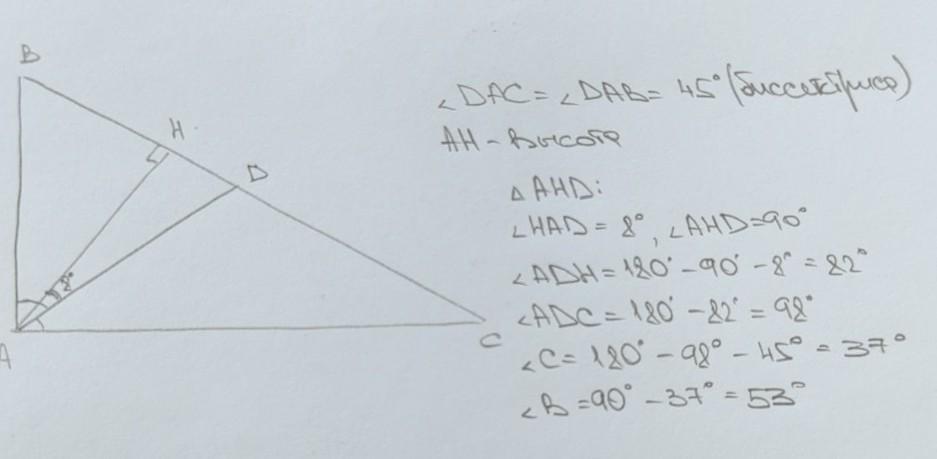 B
H
D
8°
A
C
∠DAC = ∠DAB = 45° (биссектриса)
AH - высота
△AHD:
∠HAD = 8°, ∠AHD = 90°
∠ADH = 180° - 90° - 8° = 82°
∠ADC = 180° - 82° = 98°
∠C = 180° - 98° - 45° = 37°
∠B = 90° - 37° = 53°